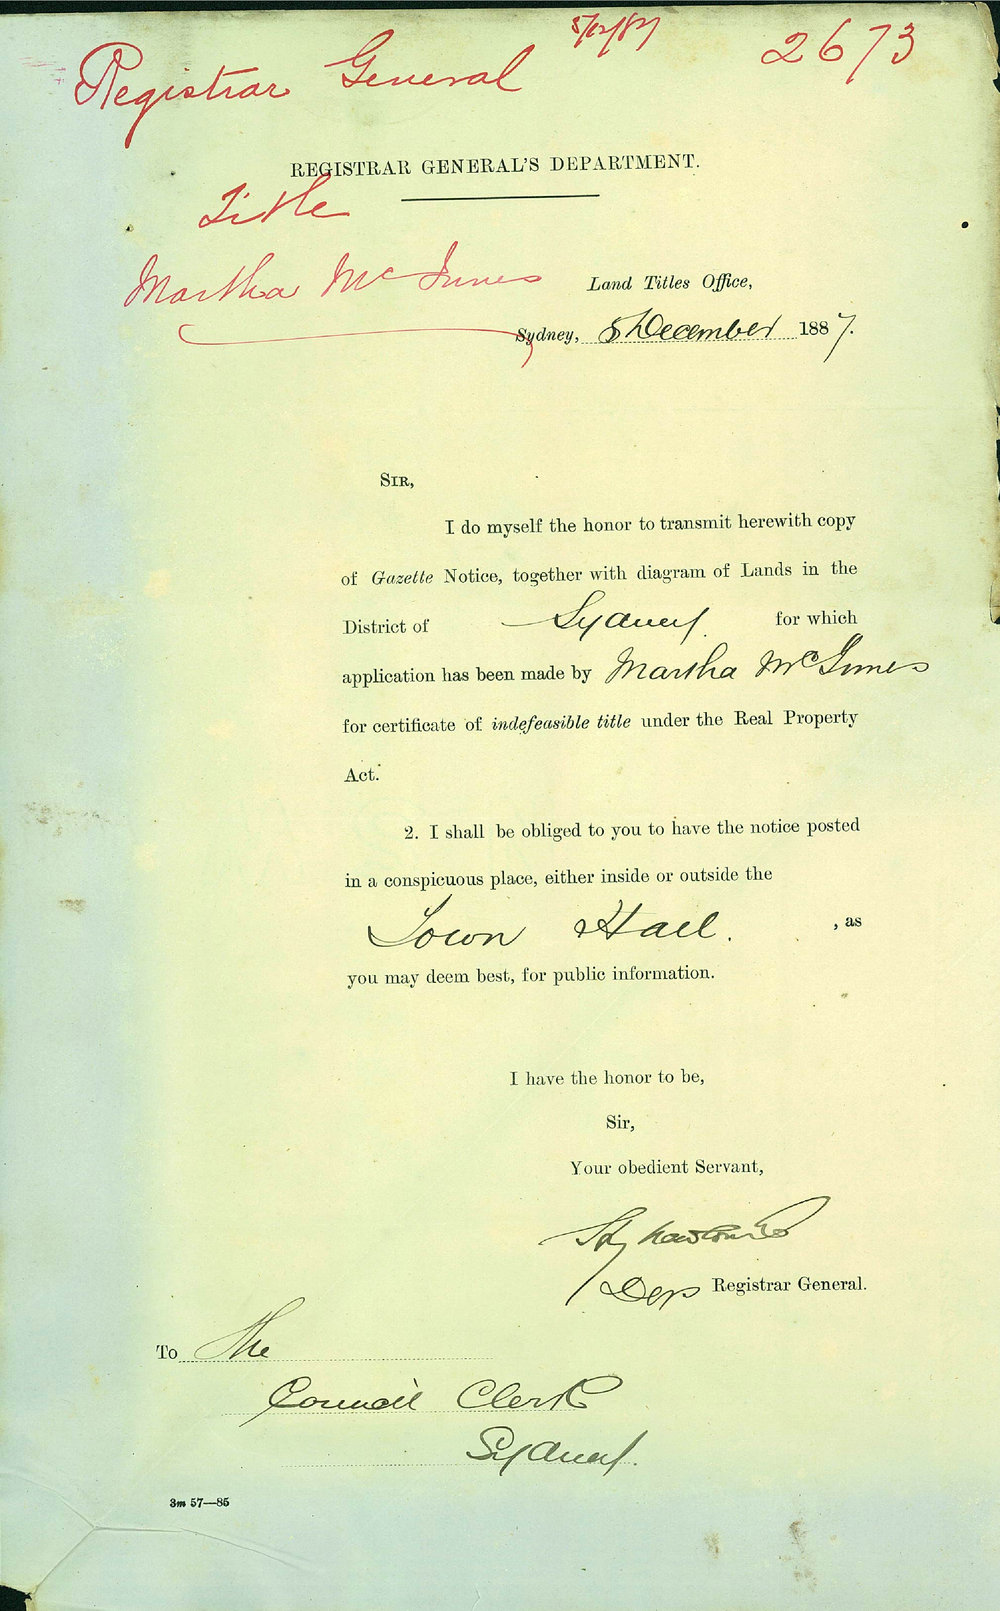 5/12/87
2673
Registrar General
REGISTRAR GENERAL'S DEPARTMENT.
Title
Martha McInnes
Land Titles Office,
Sydney, 5 December 1887.
SIR,
I do myself the honor to transmit herewith copy
of Gazette Notice, together with diagram of Lands in the
District of Sydney. for which
application has been made by Martha McInnes
for certificate of indefeasible title under the Real Property
Act.
2. I shall be obliged to you to have the notice posted
in a conspicuous place, either inside or outside the
Town Hall. , as
you may deem best, for public information.
I have the honor to be,
Sir,
Your obedient Servant,
Dep Registrar General.
To The
Council Clerk
Sydney.
3m 57—85